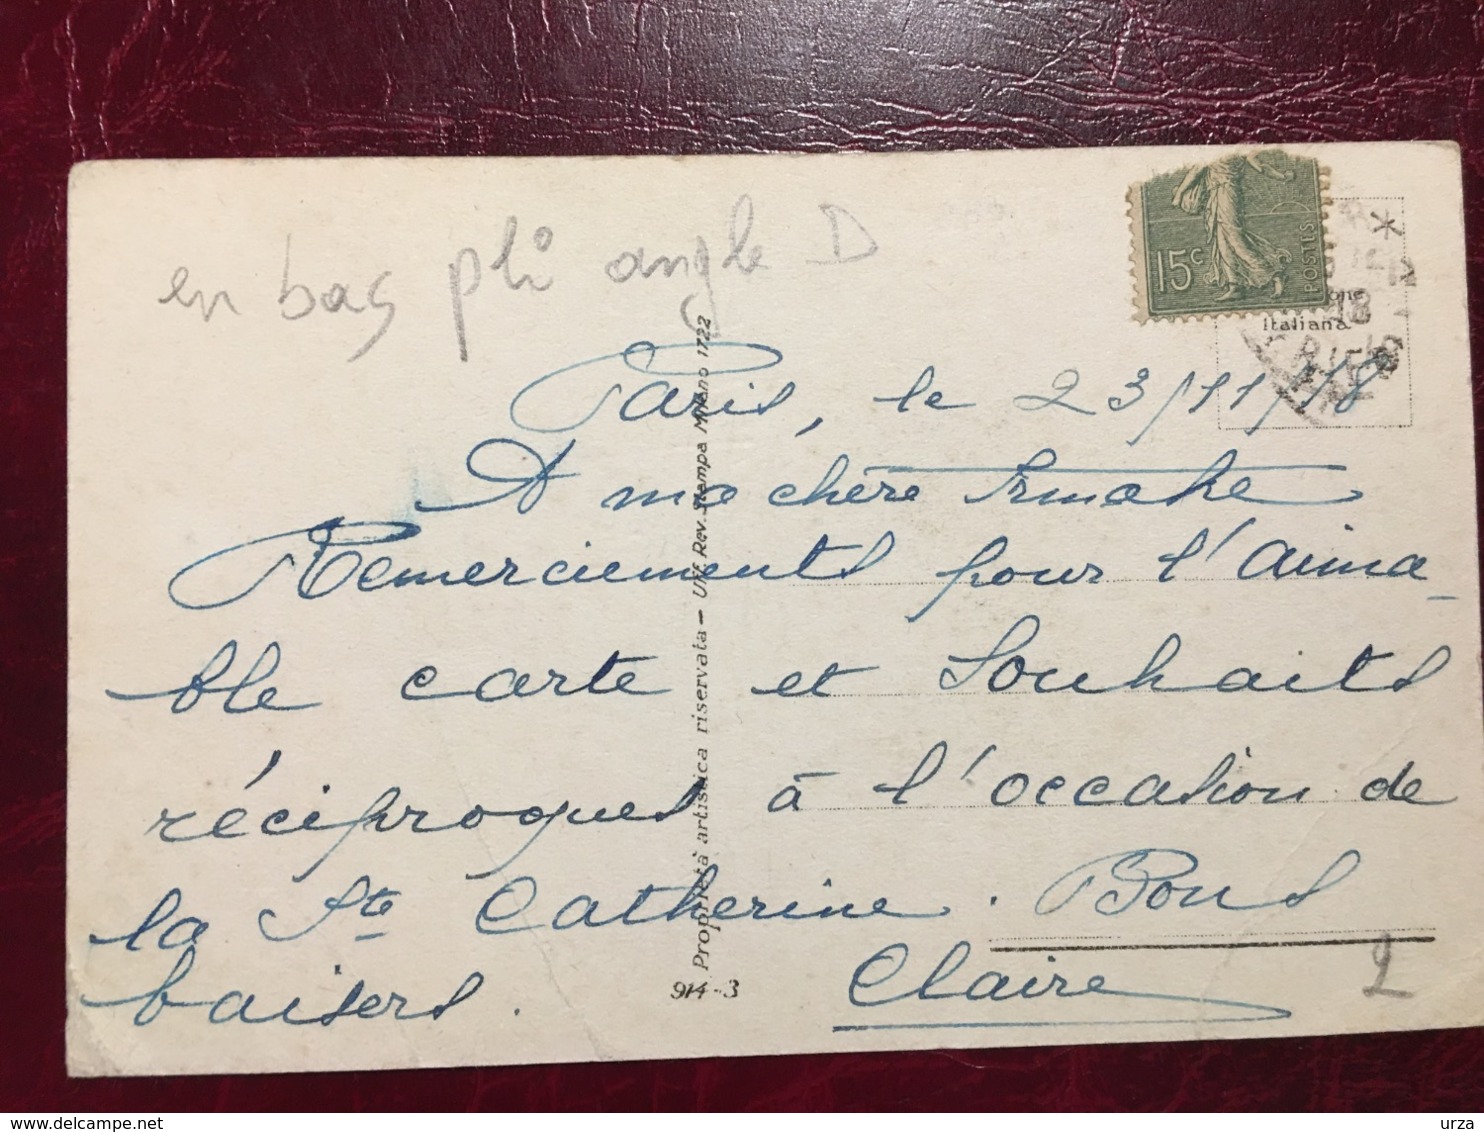 en bas pli angle D
15c
POSTES
Italiana
18
Paris, le 23/11/18
A ma chère Irmake
Remerciements pour l'aima-
ble carte et Souhaits
réciproques à l'occasion de
la Ste Catherine. Bons
baisers. Claire
2
914-3
Proprietà artistica riservata - UFF. Rev. Stampa Milano 1722
delcampe.net
urza